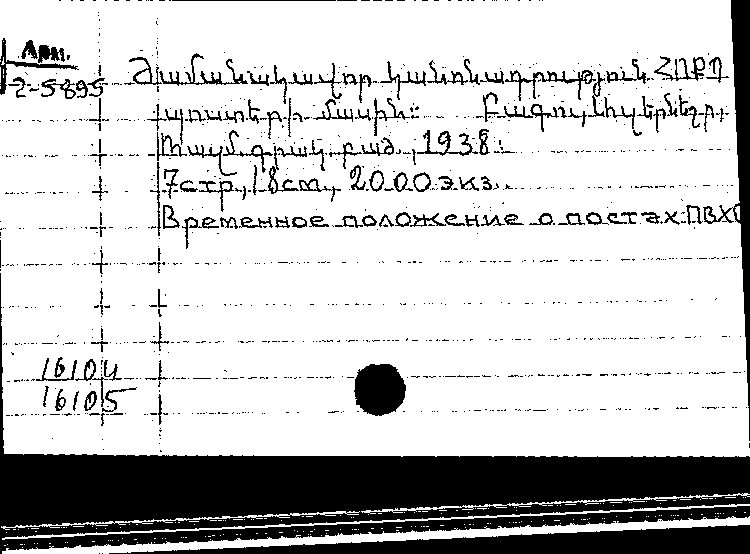 Арм.
2-5895
Ժամանակավոր կանոնադրություն ՀՈՔՊ
պոստերի մասին: Բագու,
Ռազմ. գրակ. բաժ., 1938.
7стр., 18см., 2000экз.
Временное положение о постах ПВХО
16104
16105